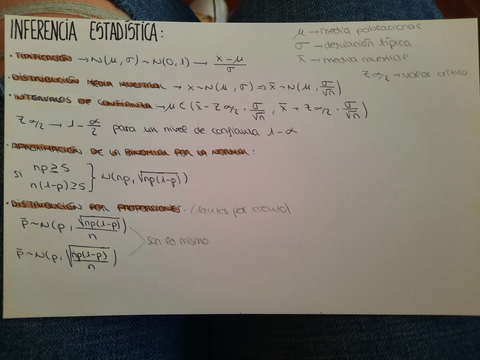 INFERENCIA ESTADÍSTICA:
μ → media poblacional
σ → desviación típica
x̄ → media muestral
Zα/2 → valor crítico
· TIPIFICACIÓN → N(μ, σ) ~ N(0, 1) → x-μ/σ
· DISTRIBUCIÓN MEDIA MUESTRAL → x ~ N(μ, σ) ⇒ x̄ ~ N(μ, σ/√n)
· INTERVALOS DE CONFIANZA → μ ∈ (x̄ - Zα/2 · σ/√n, x̄ + Zα/2 · σ/√n)
Zα/2 → 1 - α/2 para un nivel de confianza 1-α
· APROXIMACIÓN DE LA BINOMIAL POR LA NORMAL:
si np ≥ 5
n(1-p) ≥ 5 } N(np, √np(1-p))
· DISTRIBUCIÓN POR PROPORCIONES: (tantos por ciento)
p̄ ~ N(p, √np(1-p)/n)
son lo mismo
p̄ ~ N(p, √np(1-p)/n)